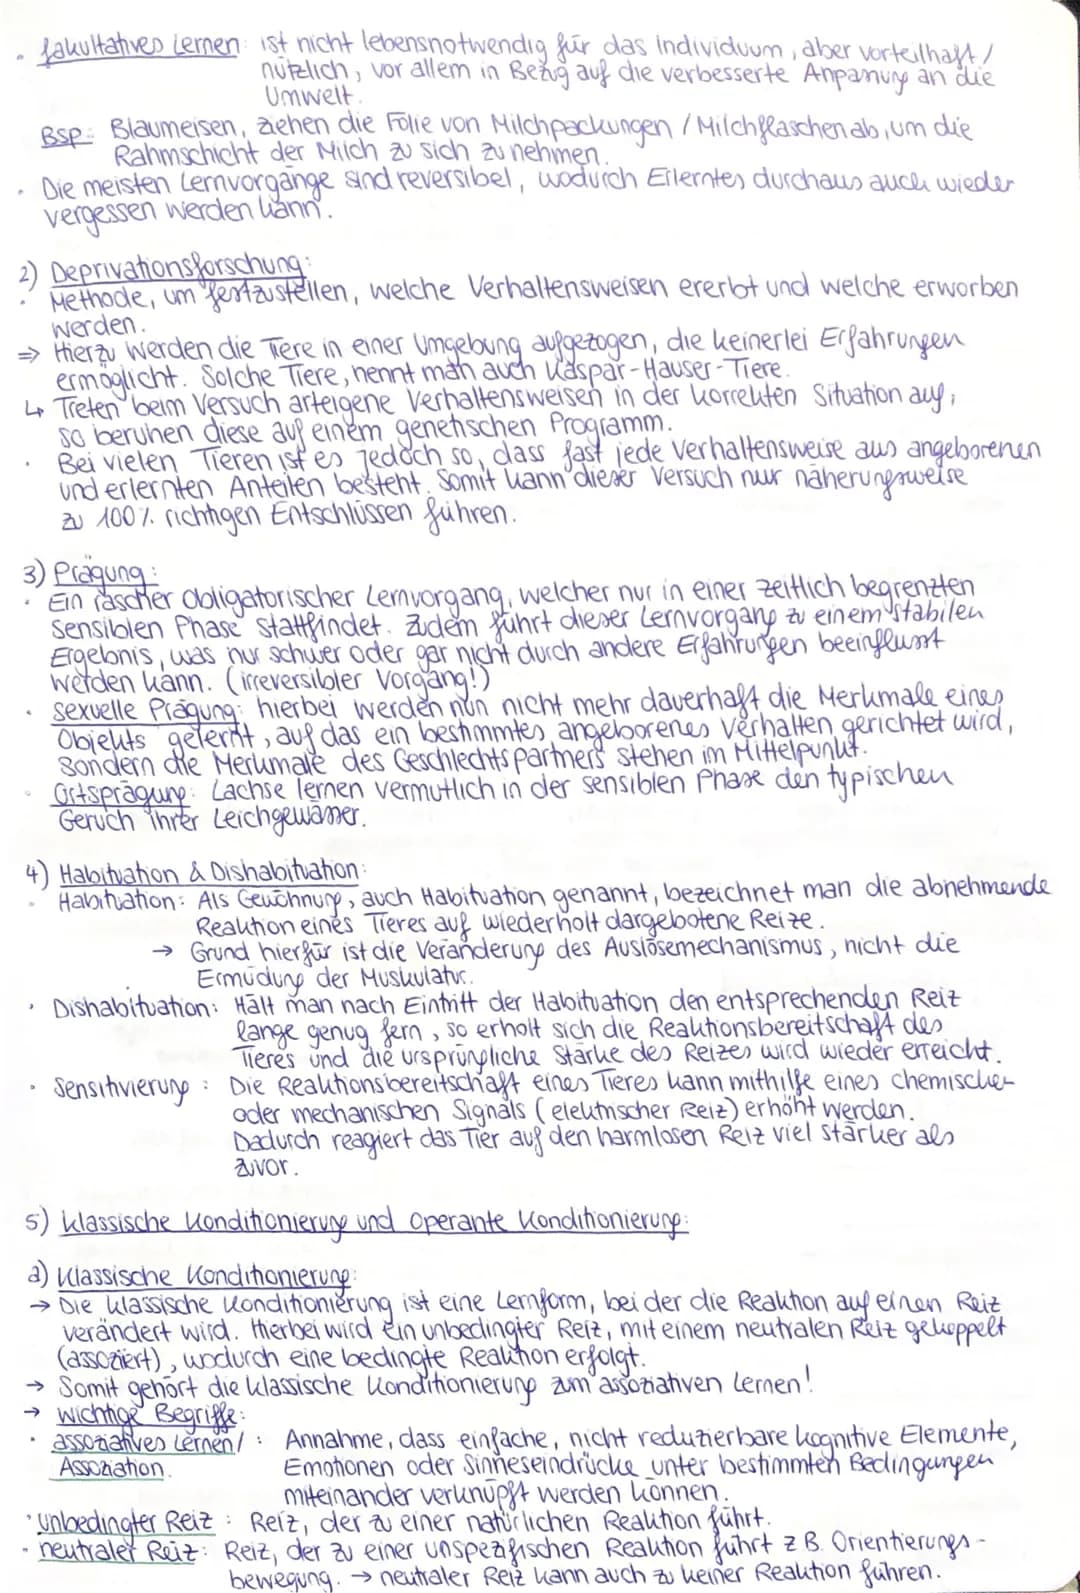 · fakultatives Lernen: ist nicht lebensnotwendig für das Individuum, aber vorteilhaft/
nützlich, vor allem in Bezug auf die verbesserte Anpassung an die
Umwelt.
Bsp.: Blaumeisen, ziehen die Folie von Milchpackungen / Milchflaschen ab, um die
Rahmschicht der Milch zu sich zu nehmen.
· Die meisten Lernvorgänge sind reversibel, wodurch Erlerntes durchaus auch wieder
vergessen werden kann.
2) Deprivationsforschung:
· Methode, um festzustellen, welche Verhaltensweisen ererbt und welche erworben
werden.
⇒ Hierzu werden die Tiere in einer Umgebung aufgezogen, die keinerlei Erfahrungen
ermöglicht. Solche Tiere, nennt man auch Kaspar-Hauser-Tiere.
↳ Treten beim Versuch arteigene Verhaltensweisen in der korrekten Situation auf,
so beruhen diese auf einem genetischen Programm.
· Bei vielen Tieren ist es jedoch so, dass fast jede Verhaltensweise aus angeborenen
und erlernten Anteilen besteht. Somit kann dieser Versuch nur näherungsweise
zu 100% richtigen Entschlüssen führen.
3) Prägung:
· Ein rascher obligatorischer Lernvorgang, welcher nur in einer zeitlich begrenzten
sensiblen Phase stattfindet. Zudem führt dieser Lernvorgang zu einem stabilen
Ergebnis, was nur schwer oder gar nicht durch andere Erfahrungen beeinflusst
werden kann. (irreversibler Vorgang!)
· sexuelle Prägung: hierbei werden nun nicht mehr dauerhaft die Merkmale eines
Objekts gelernt, auf das ein bestimmtes angeborenes Verhalten gerichtet wird,
sondern die Merkmale des Geschlechtspartners stehen im Mittelpunkt.
· Ortsprägung: Lachse lernen vermutlich in der sensiblen Phase den typischen
Geruch ihrer Leichgewässer.
4) Habituation & Dishabituation:
· Habituation: Als Gewöhnung, auch Habituation genannt, bezeichnet man die abnehmende
Reaktion eines Tieres auf wiederholt dargebotene Reize.
→ Grund hierfür ist die Veränderung des Auslösemechanismus, nicht die
Ermüdung der Muskulatur.
· Dishabituation: Hält man nach Eintritt der Habituation den entsprechenden Reiz
lange genug fern, so erholt sich die Reaktionsbereitschaft des
Tieres und die ursprüngliche Stärke des Reizes wird wieder erreicht.
· Sensitivierung: Die Reaktionsbereitschaft eines Tieres kann mithilfe eines chemischer
oder mechanischen Signals (elektrischer Reiz) erhöht werden.
Dadurch reagiert das Tier auf den harmlosen Reiz viel stärker als
zuvor.
5) Klassische Konditionierung und Operante Konditionierung:
a) Klassische Konditionierung:
→ Die klassische Konditionierung ist eine Lernform, bei der die Reaktion auf einen Reiz
verändert wird. Hierbei wird ein unbedingter Reiz, mit einem neutralen Reiz gekoppelt
(assoziiert), wodurch eine bedingte Reaktion erfolgt.
→ Somit gehört die klassische Konditionierung zum assoziativen Lernen!
→ wichtige Begriffe:
· assoziatives Lernen/ : Annahme, dass einfache, nicht reduzierbare kognitive Elemente,
Assoziation. Emotionen oder Sinneseindrücke unter bestimmten Bedingungen
miteinander verknüpft werden können.
· unbedingter Reiz : Reiz, der zu einer natürlichen Reaktion führt.
· neutraler Reiz: Reiz, der zu einer unspezifischen Reaktion führt z.B. Orientierungs-
bewegung. → neutraler Reiz kann auch zu keiner Reaktion führen.